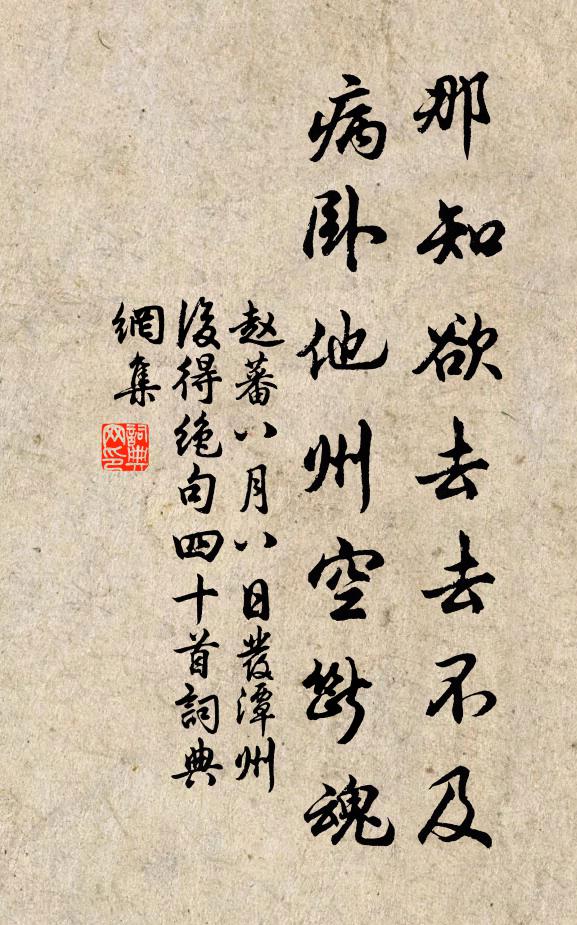 那知欲去去不及
病卧他州空斷魂
赵蕃八月八日發潭州
後得绝句四十首詞典
網集
詞典
网印